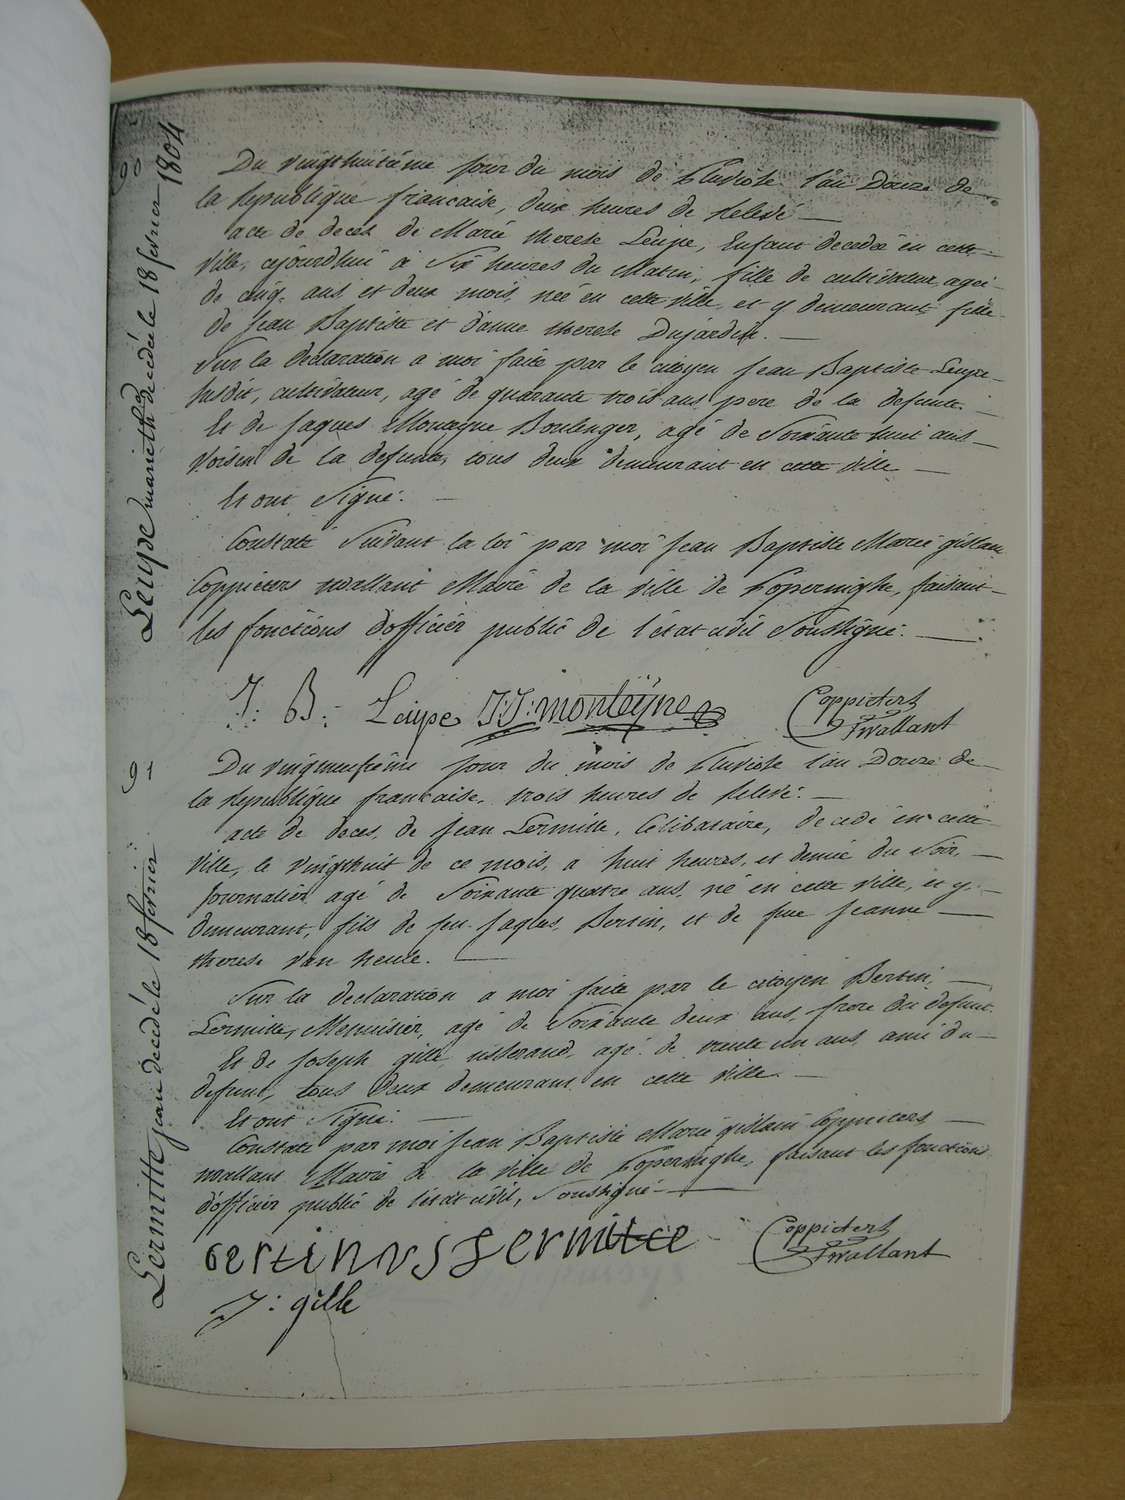 90
Leupe marie th. decédée le 18 fevrier 1804
Du vingthuitieme jour du mois de Pluviose l'an Douze de
la Republique francaise, deux heures de Relevé
acte de decès de Marie therese Leupe, Enfant decedée en cette
ville, cejourdhui a Six heures du Matin, fille de cultivateur, agée
de cinq ans et deux mois, née en cette ville et y demeurant fille
de Jean Baptiste et d'anne therese Dujardin.
Sur la declaration a moi faite par le citoyen Jean Baptiste Leupe
susdit, cultivateur, agé de quarante trois ans pere de la defunte.
Et de Jaques Monteyne Boulenger, agé de Soixante huit ans
Voisin de la defunte, tous deux demeurant en cette ville
Et ont Signé.
Constaté Suivant la loi par moi Jean Baptiste Marie gislain
Coppieters wallant Maire de la ville de Poperinghe, faisant
les fonctions d'officier public de l'état civil Soussigné.
J: B: Leupe J:J: monteÿne Coppieters
Twallant
91
Lermitte jean decedé le 18 fevrier
Du vingtneufieme jour du mois de Pluviose l'an Douze de
la Republique francaise, trois heures de Relevé.
acte de deces, de Jean Lermitte, Celibataire, decedé en cette
ville, le vingthuit de ce mois, a huit heures, et demie du Soir,
Journalier agé de Soixante quatre ans, né en cette ville, et y
demeurant, fils de feu Jaques, Bertin, et de feue Jeanne
therese Van heule.
Sur la declaration a moi faite par le citoyen Bertin,
Lermitte, Menuisier, agé de Soixante deux ans, frere du defunt.
Et de Joseph gille, tisserand, agé de trente un ans, ami du
defunt, tous deux demeurans en cette ville.
Et ont Signé.
Constaté par moi Jean Baptiste Marie gislain Coppieters
wallant Maire de la ville de Poperinghe, faisant les fonctions
d'officier public de l'état civil, Soussigné
bertinus Lermitte Coppieters
J: gille Twallant